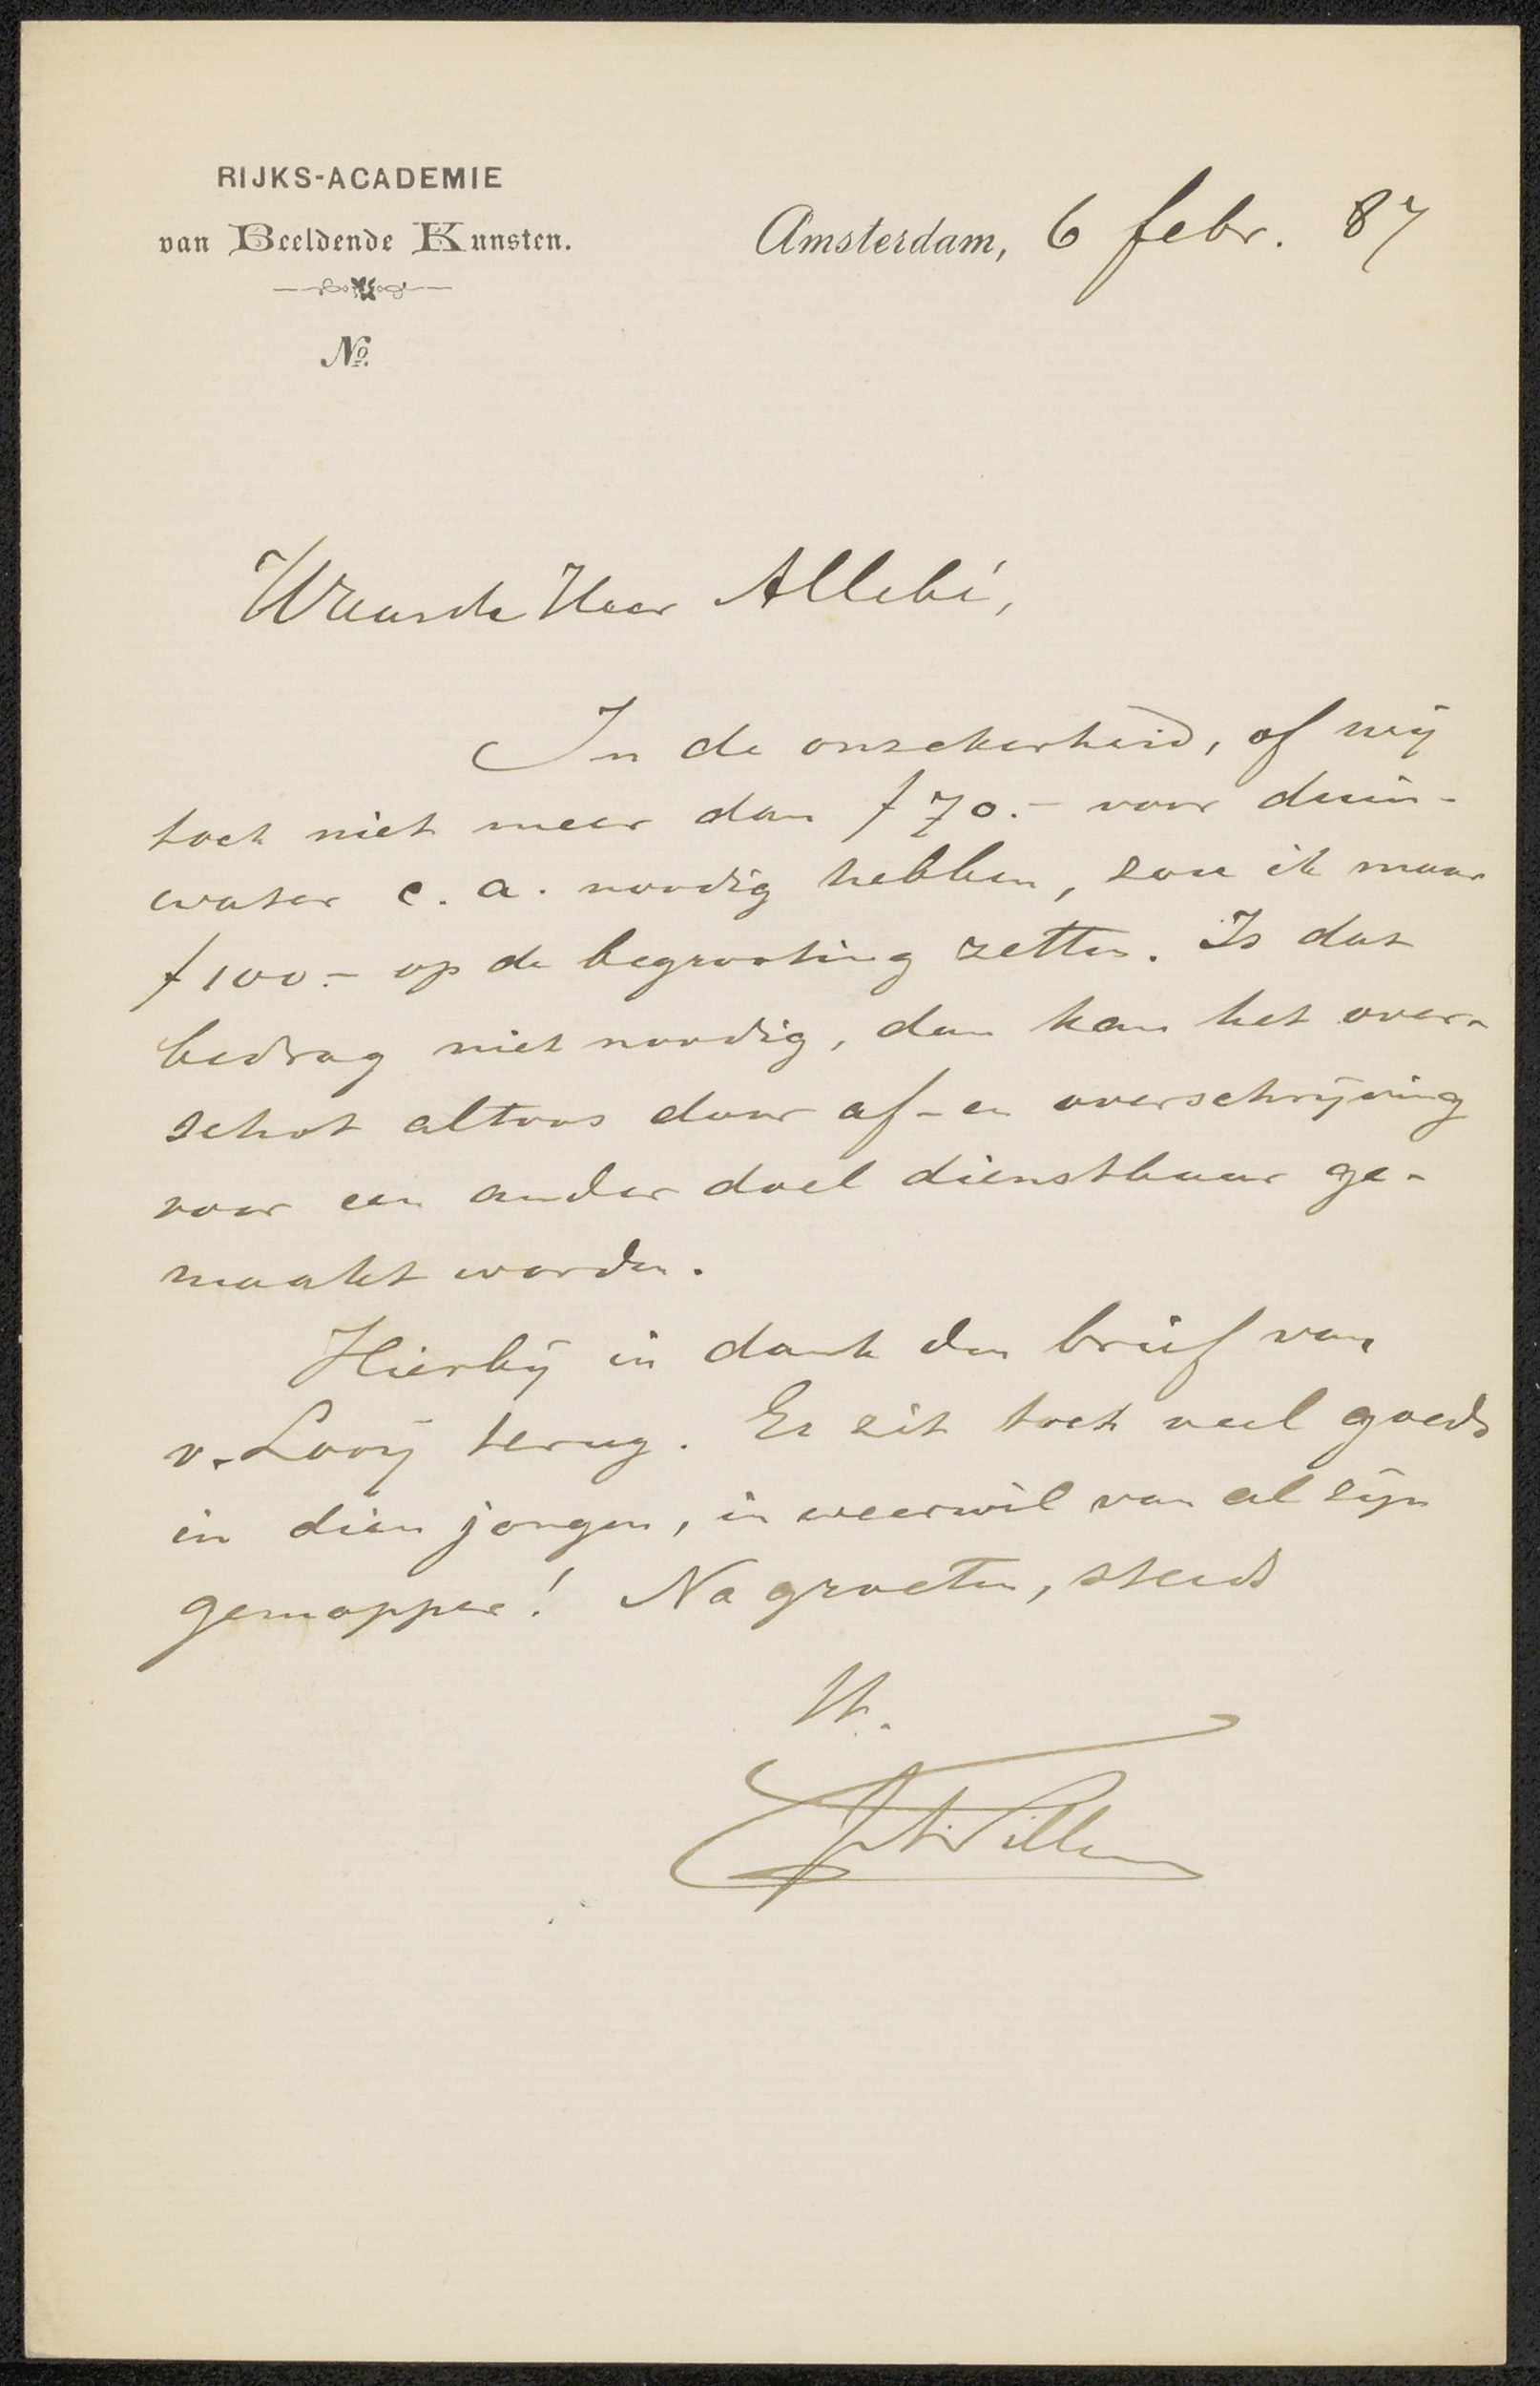 RIJKS-ACADEMIE
van Beeldende Kunsten.
No.
Amsterdam, 6 febr. 87
Waarde Heer Allebé,
In de onzekerheid, of wij
toch niet meer dan f 70.- voor duin-
water c. a. noodig hebben, zou ik maar
f 100.- op de begrooting zetten. Is dat
bedrag niet noodig, dan kan het over-
schot altoos door af- en overschrijving
voor een ander doel dienstbaar ge-
maakt worden.
Hierbij in dank den brief van
v. Looij terug. Er zit toch veel goeds
in dien jongen, in weerwil van al zijn
gemopper! Na groeten, steeds